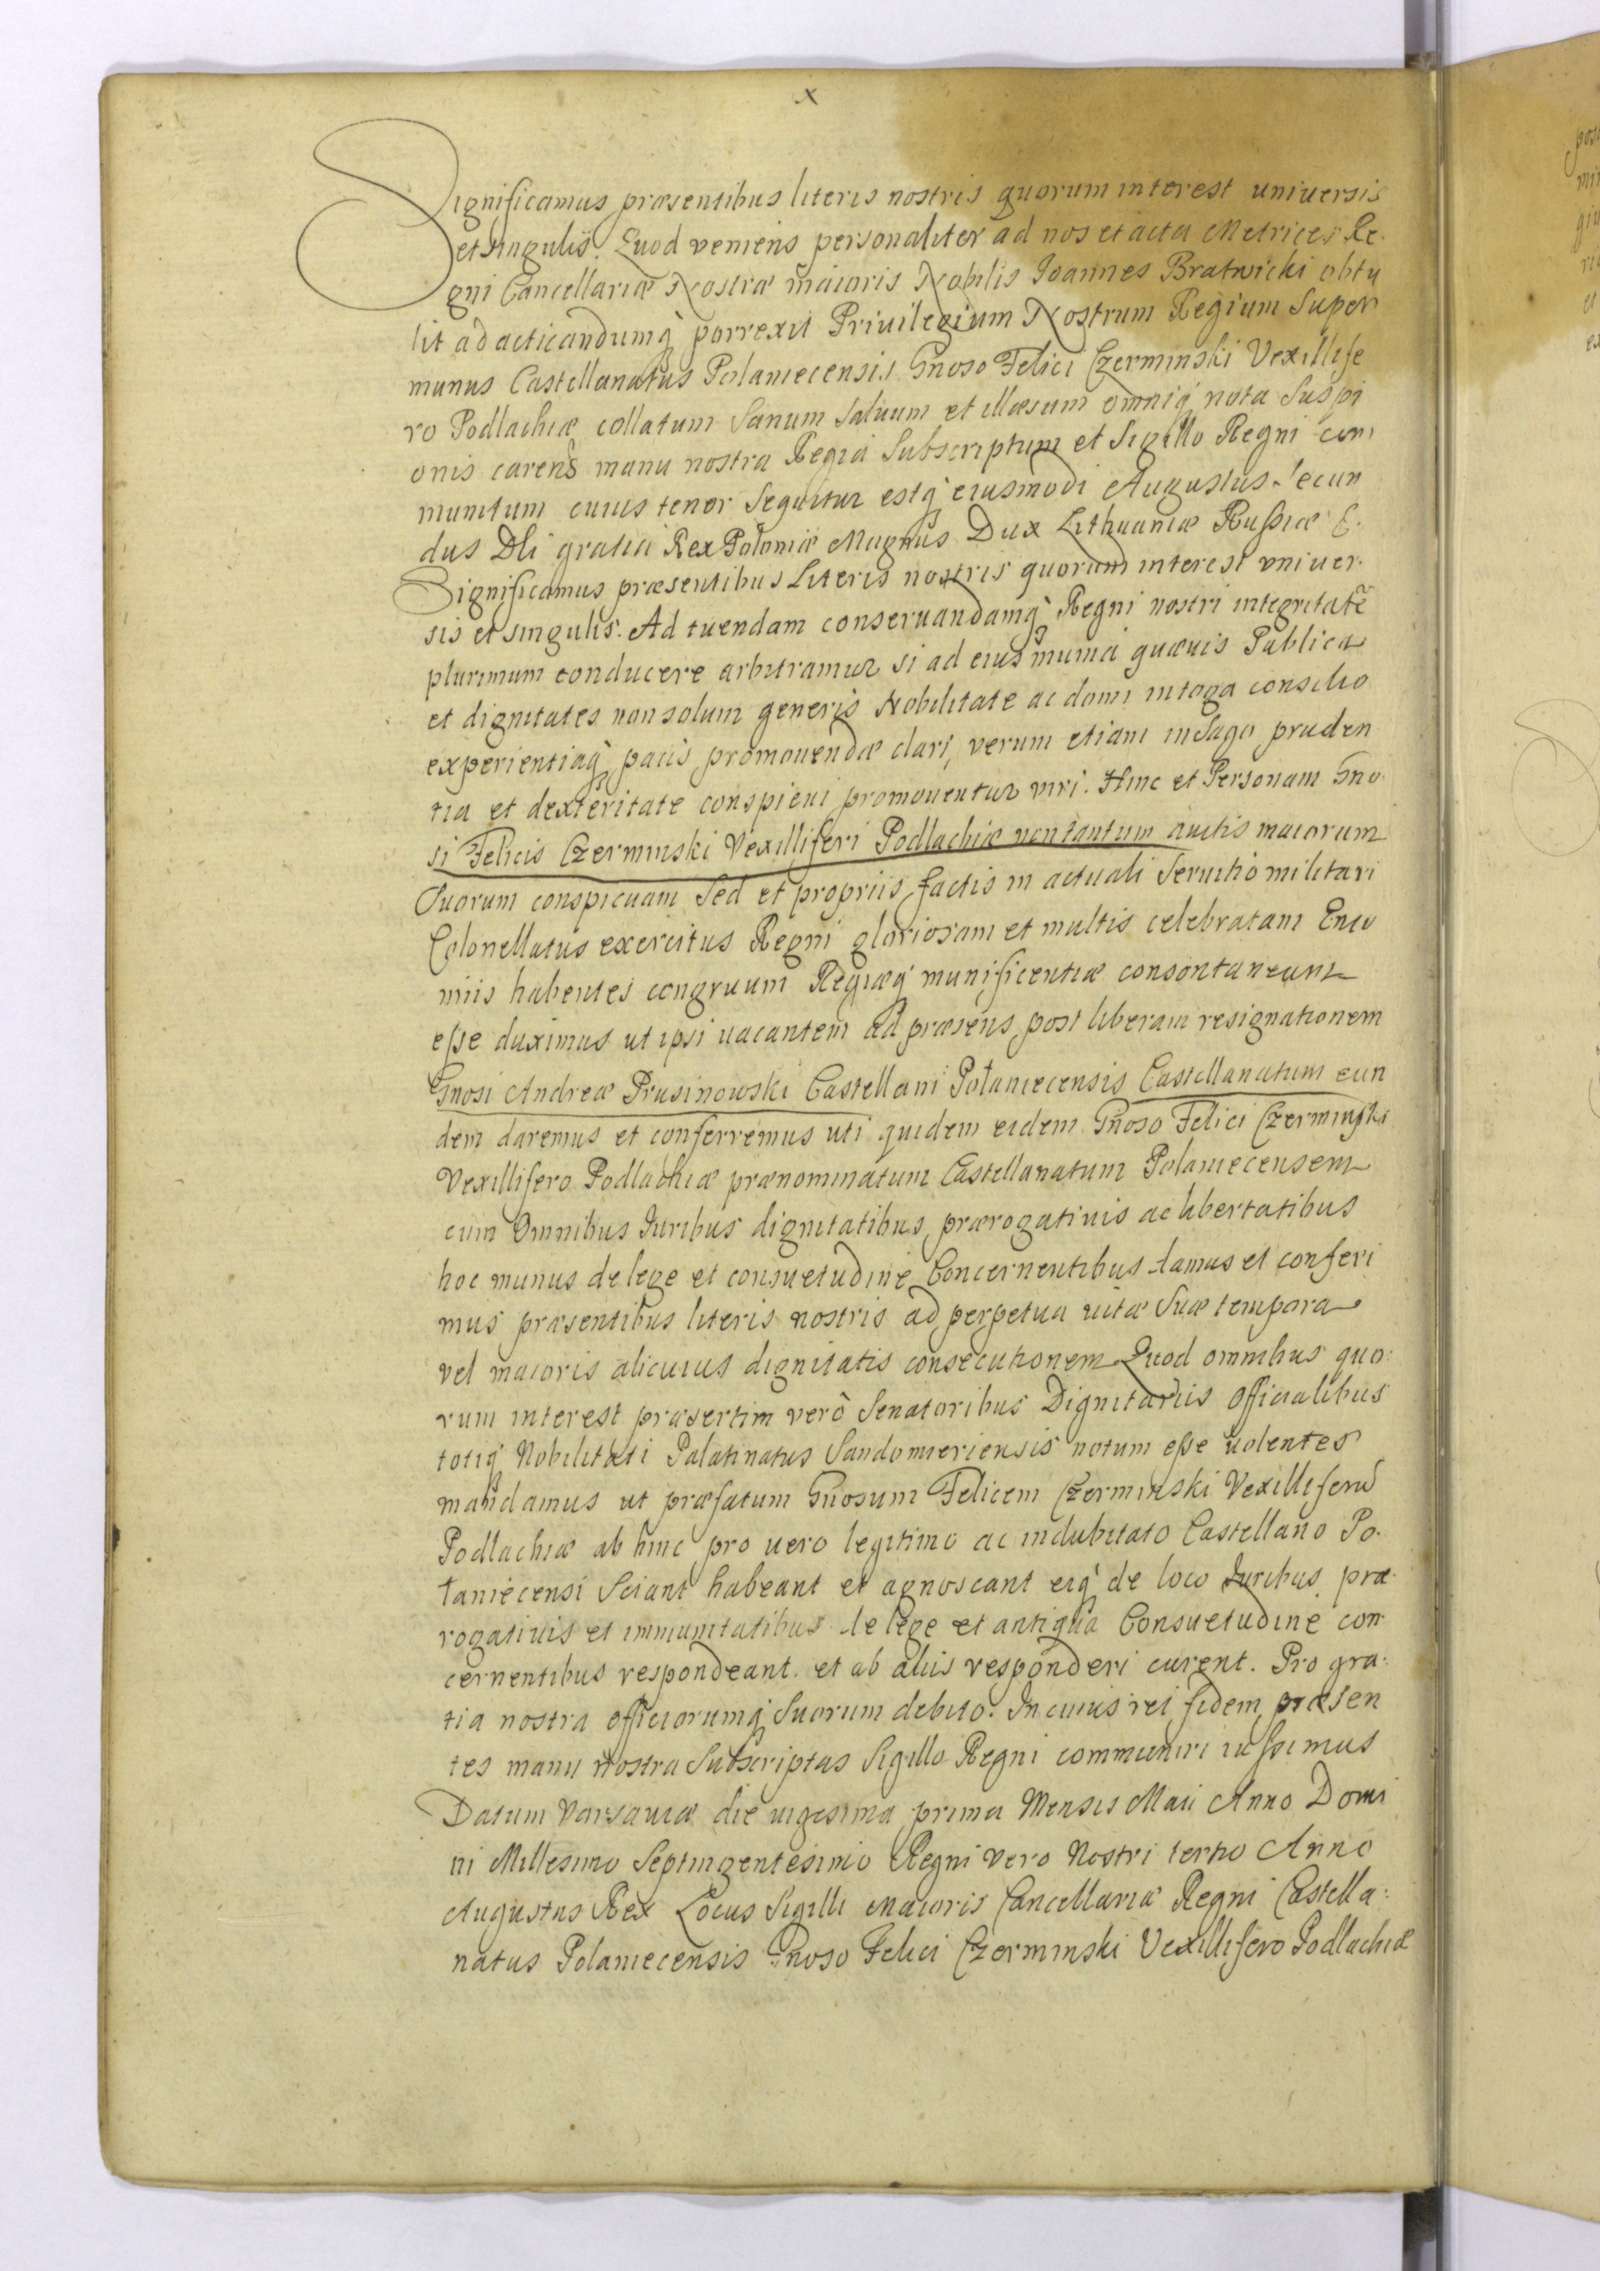 x
Significamus præsentibus literis nostris quorum interest universis
et singulis. Quod veniens personaliter ad nos et acta Metrices Re-
gni Cancellariæ Nostræ maioris Nobilis Joannes Bratwicki obtu
lit ad acticandumq̀ porrexit Privilegium Nostrum Regium Super
munus Castellanatus Polaniecensis Gnoso Felici Czerminski Vexillife
ro Podlachiæ collatum Sanum salvum et illæsum omniq́ nota Suspi
onis carens manu nostra Regia Subscriptum et Sigillo Regni com
munitum cuius tenor Sequitur estq̀ eiusmodi Augustus Secun
dus Dei gratia Rex Poloniæ Magnus Dux Lithuaniæ Russiæ &.
Significamus præsentibus Literis nostris quorum interest univer-
sis et singulis. Ad tuendam conservandamq̀ Regni nostri integritatē
plurimum conducere arbitramur si ad eius munia quævis Publica
et dignitates non solum generis Nobilitate ac domi in toga consilio
experientiaq̀ pacis promovendæ clari, verum etiam in Sago pruden
tia et dexteritate conspicui promoventur viri. Hinc et Personam Gno
si Felicis Czerminski Vexilliferi Podlachiæ non tantum avitis maiorum
Suorum conspicuam Sed et propriis factis in actuali Servitio militari
Colonellatus exercitus Regni gloriosam et multis celebratam Enco
miis habentes congruum Regiæq́ munificentiæ consontaneum
esse duximus ut ipsi vacantem ad præsens post liberam resignationem
Gnosi Andreæ Prusinowski Castellani Połaniecensis Castellanatum eun
dem daremus et conferremus uti quidem eidem Gnoso Felici Czerminski
Vexillifero Podlachiæ prænominatum Castellanatum Polaniecensem
cum Omnibus Iuribus dignitatibus prærogativis ac libertatibus
hoc munus de lege et consuetudine Concernentibus damus et conferi
mus præsentibus literis nostris ad perpetua vitæ Suæ tempora
vel maioris alicuius dignitatis consecutionem Quod omnibus quo:
rum interest præsertim verò Senatoribus Dignitariis Officialibus
totiq́ Nobilitati Palatinatus Sandomieriensis notum esse volentes
mandamus ut præfatum Gnosum Felicem Czerminski Vexilliferū
Podlachiæ ab hinc pro vero legitimo ac indubitato Castellano Po-
łaniecensi Sciant habeant et agnoscant eiq̀ de loco Iuribus præ-
rogativis et immunitatibus de lege et antiqua Consuetudine con-
cernentibus respondeant. et ab aliis responderi curent. Pro gra:
tia nostra officiorumq́ Suorum debito. In cuius rei fidem præsen
tes manu nostra Subscriptas Sigillo Regni communiri iussimus
Datum Varsaviæ die vigesima prima Mensis Maii Anno Domi
ni Millesimo Septingentesimo Regni vero Nostri tertio Anno
Augustus Rex Locus Sigilli Maioris Cancellariæ Regni Castella:
natus Polaniecensis Gnoso Felici Czerminski Vexillifero Podlachiæ